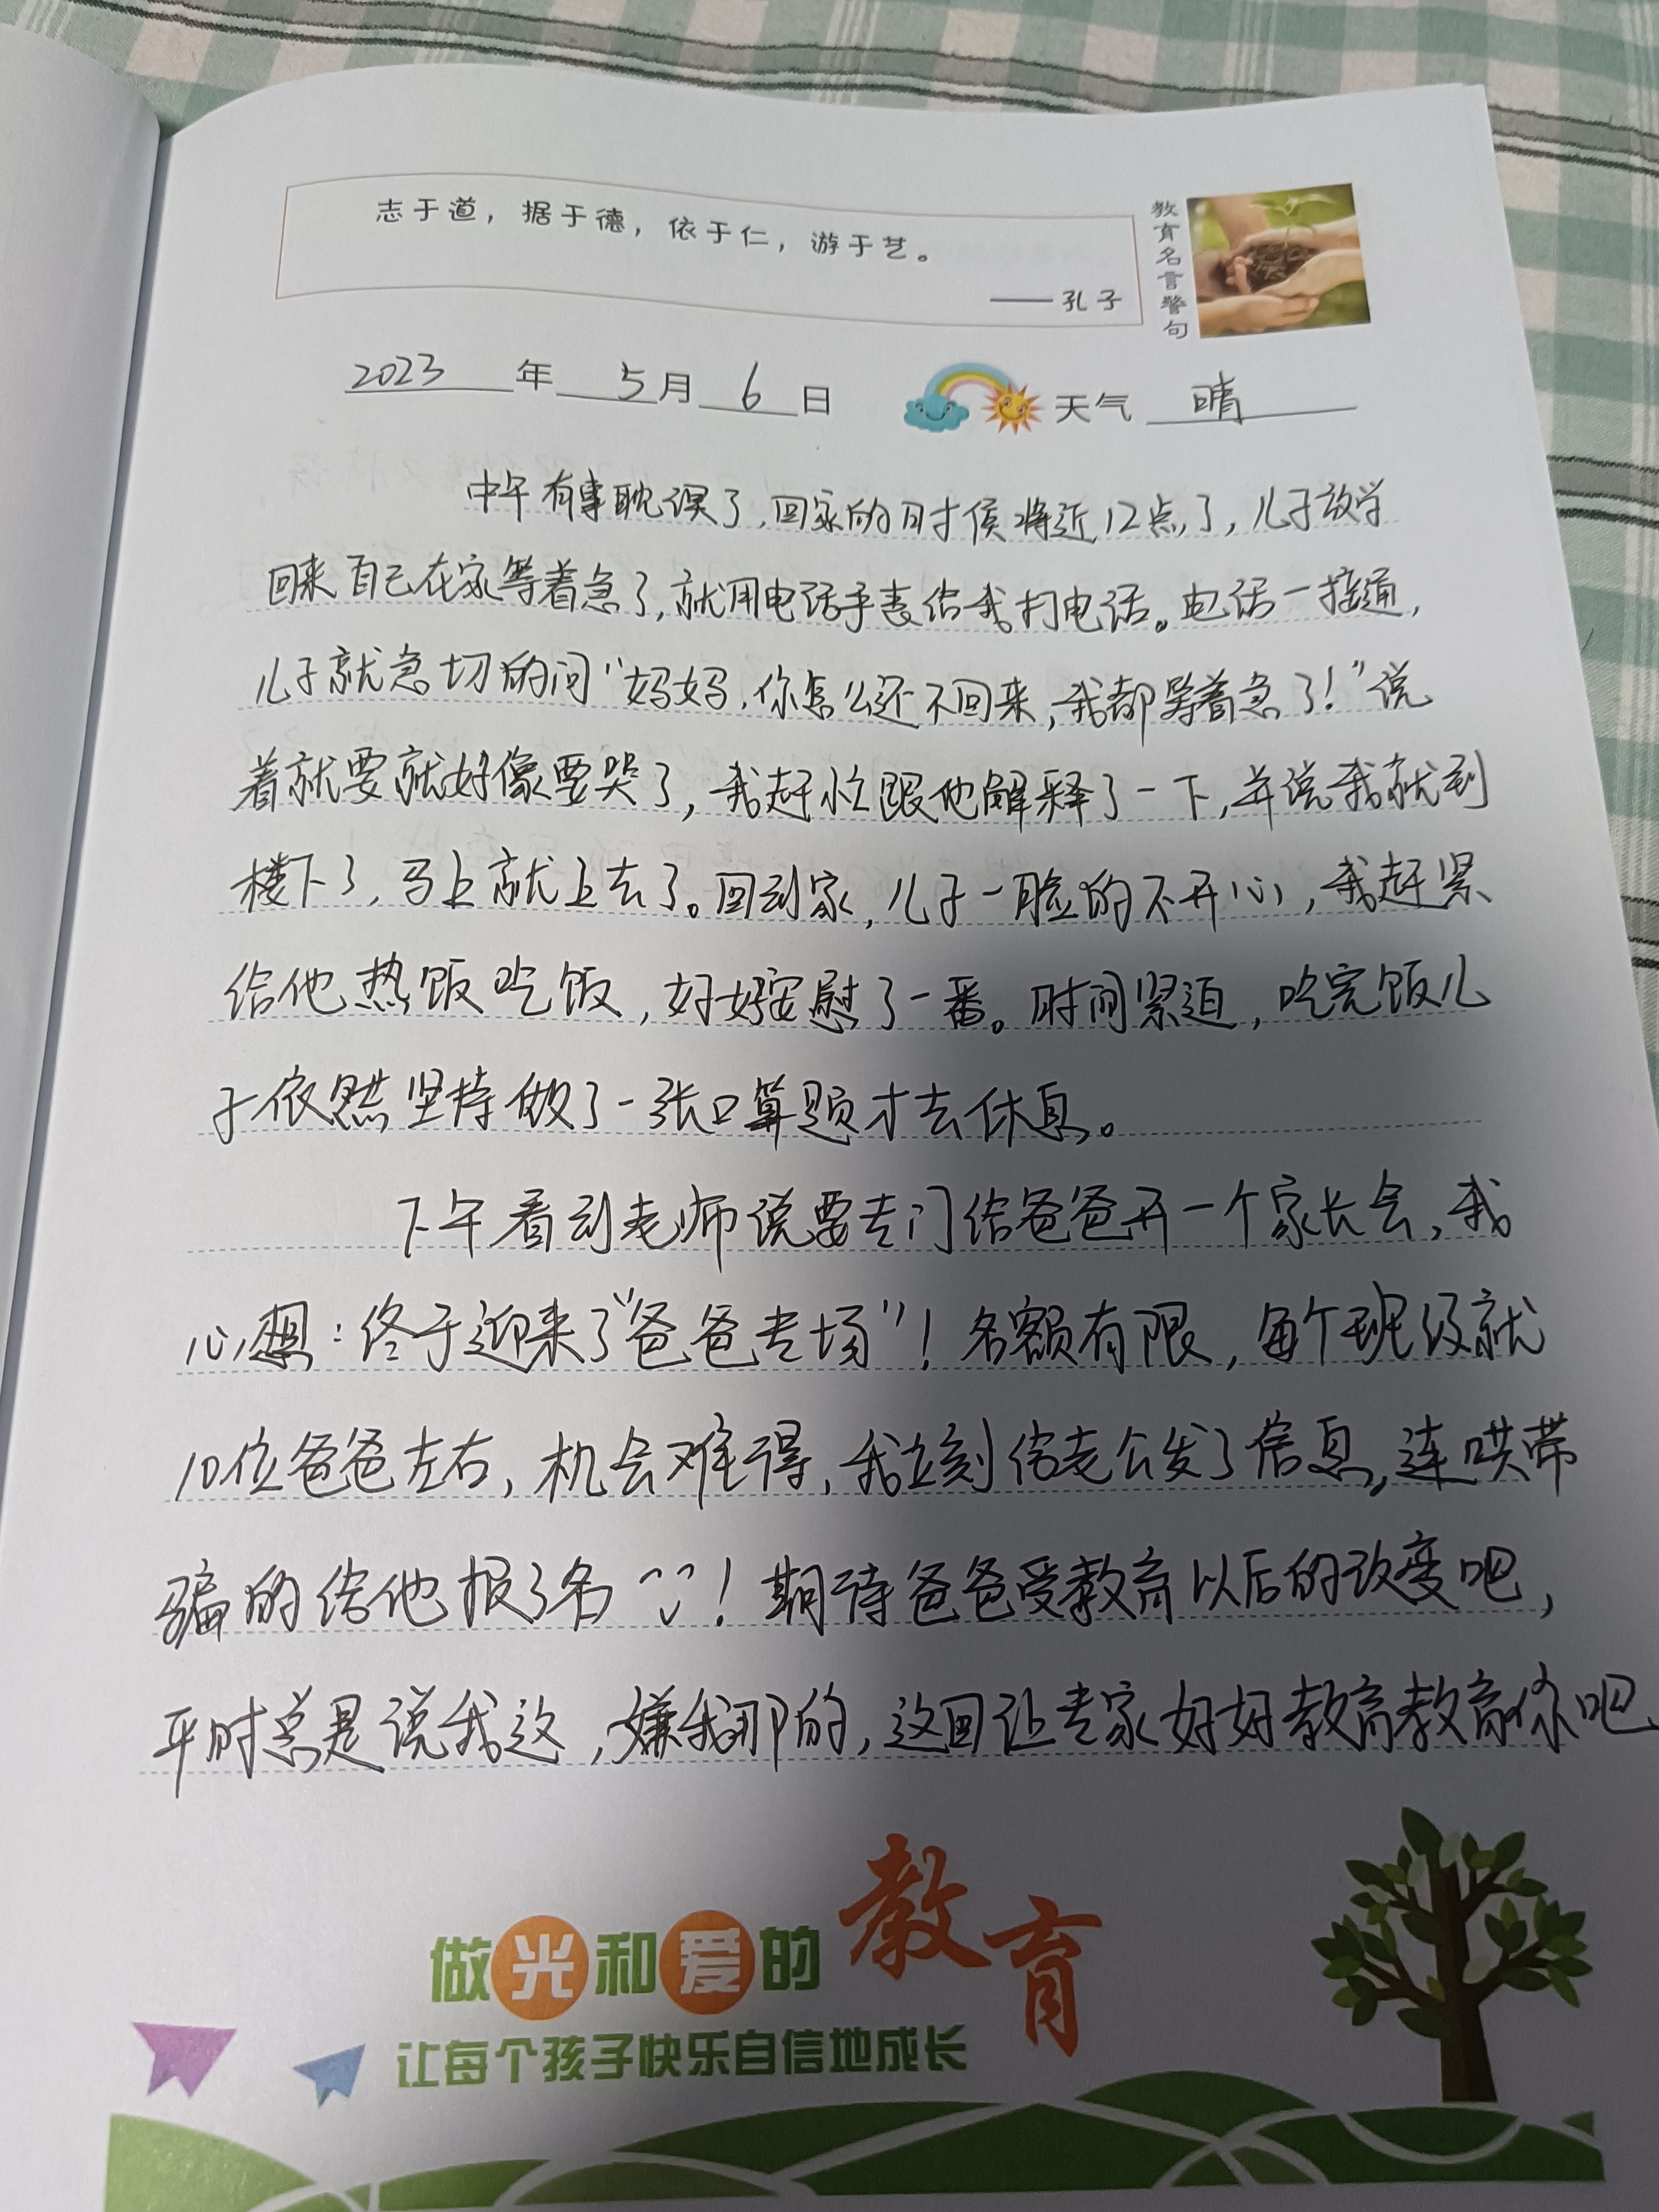 志于道，据于德，依于仁，游于艺。
——孔子
教育名言警句
2023年5月6日 天气 晴
中午有事耽误了，回家的时候将近12点了，儿子放学
回来自己在家等着急了，就用电话手表给我打电话。电话一接通，
儿子就急切的问“妈妈，你怎么还不回来，我都等着急了！”说
着就要就好像要哭了，我赶忙跟他解释了一下，并说我就到
楼下了，马上就上去了。回到家，儿子一脸的不开心，我赶紧
给他热饭吃饭，好好安慰了一番。时间紧迫，吃完饭儿
子依然坚持做了一张口算题才去休息。
下午看到老师说要专门给爸爸开一个家长会，我
心想：终于迎来了“爸爸专场”！名额有限，每个班级就
10位爸爸左右，机会难得，我立刻给老公发了信息，连哄带
骗的给他报了名！期待爸爸受教育以后的改变吧，
平时总是说我这，嫌我那的，这回让专家好好教育教育你吧
做光和爱的教育
让每个孩子快乐自信地成长